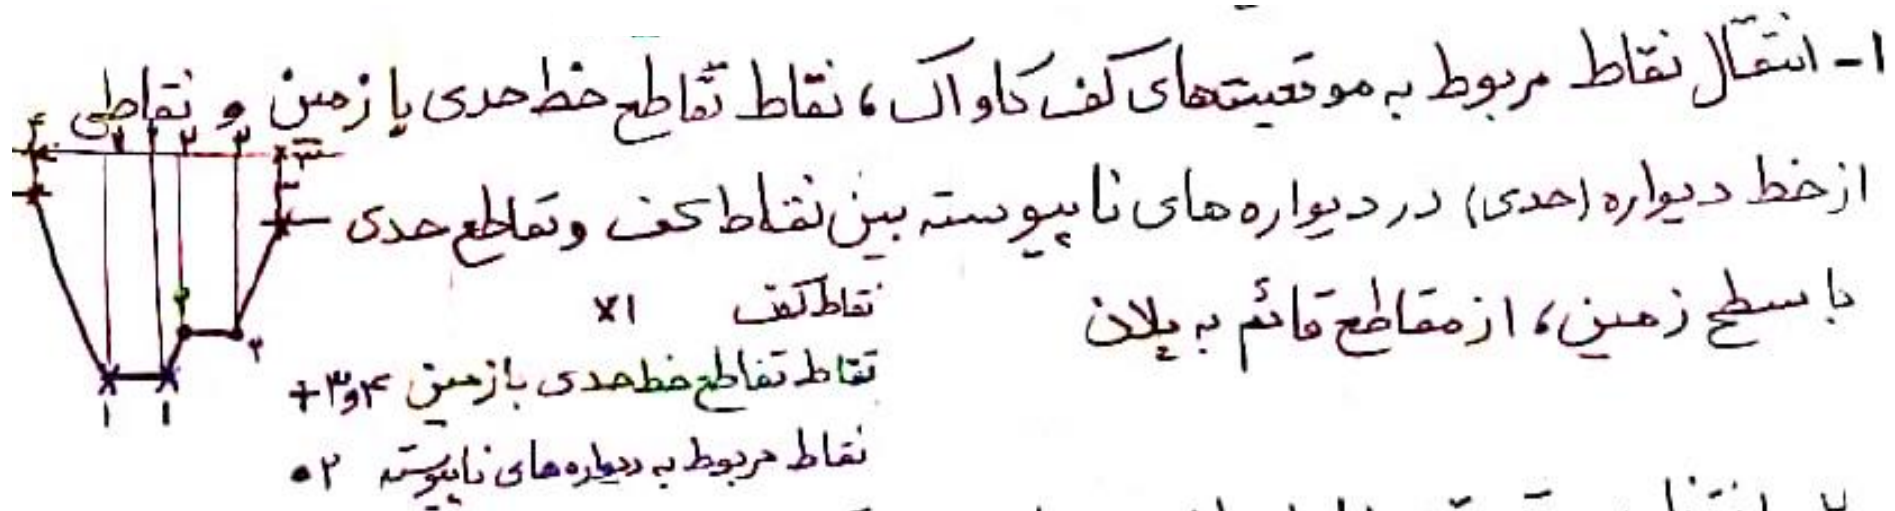 ۱- انتقال نقاط مربوط به موقعیتهای کف کاواک، نقاط تقاطع خط حدی با زمین و نقاطی
از خط دیواره (حدی) در دیواره های ناپیوسته بین نقاط کف و تقاطع حدی
با سطح زمین، از مقاطع قائم به پلان
نقاط کف ×۱
نقاط تقاطع خط حدی با زمین ۳و۴ +
نقاط مربوط به دیواره های ناپیوسته ۲ •
۱ ۱ ۲ ۲ ۳
۲ ۲
۱ ۱